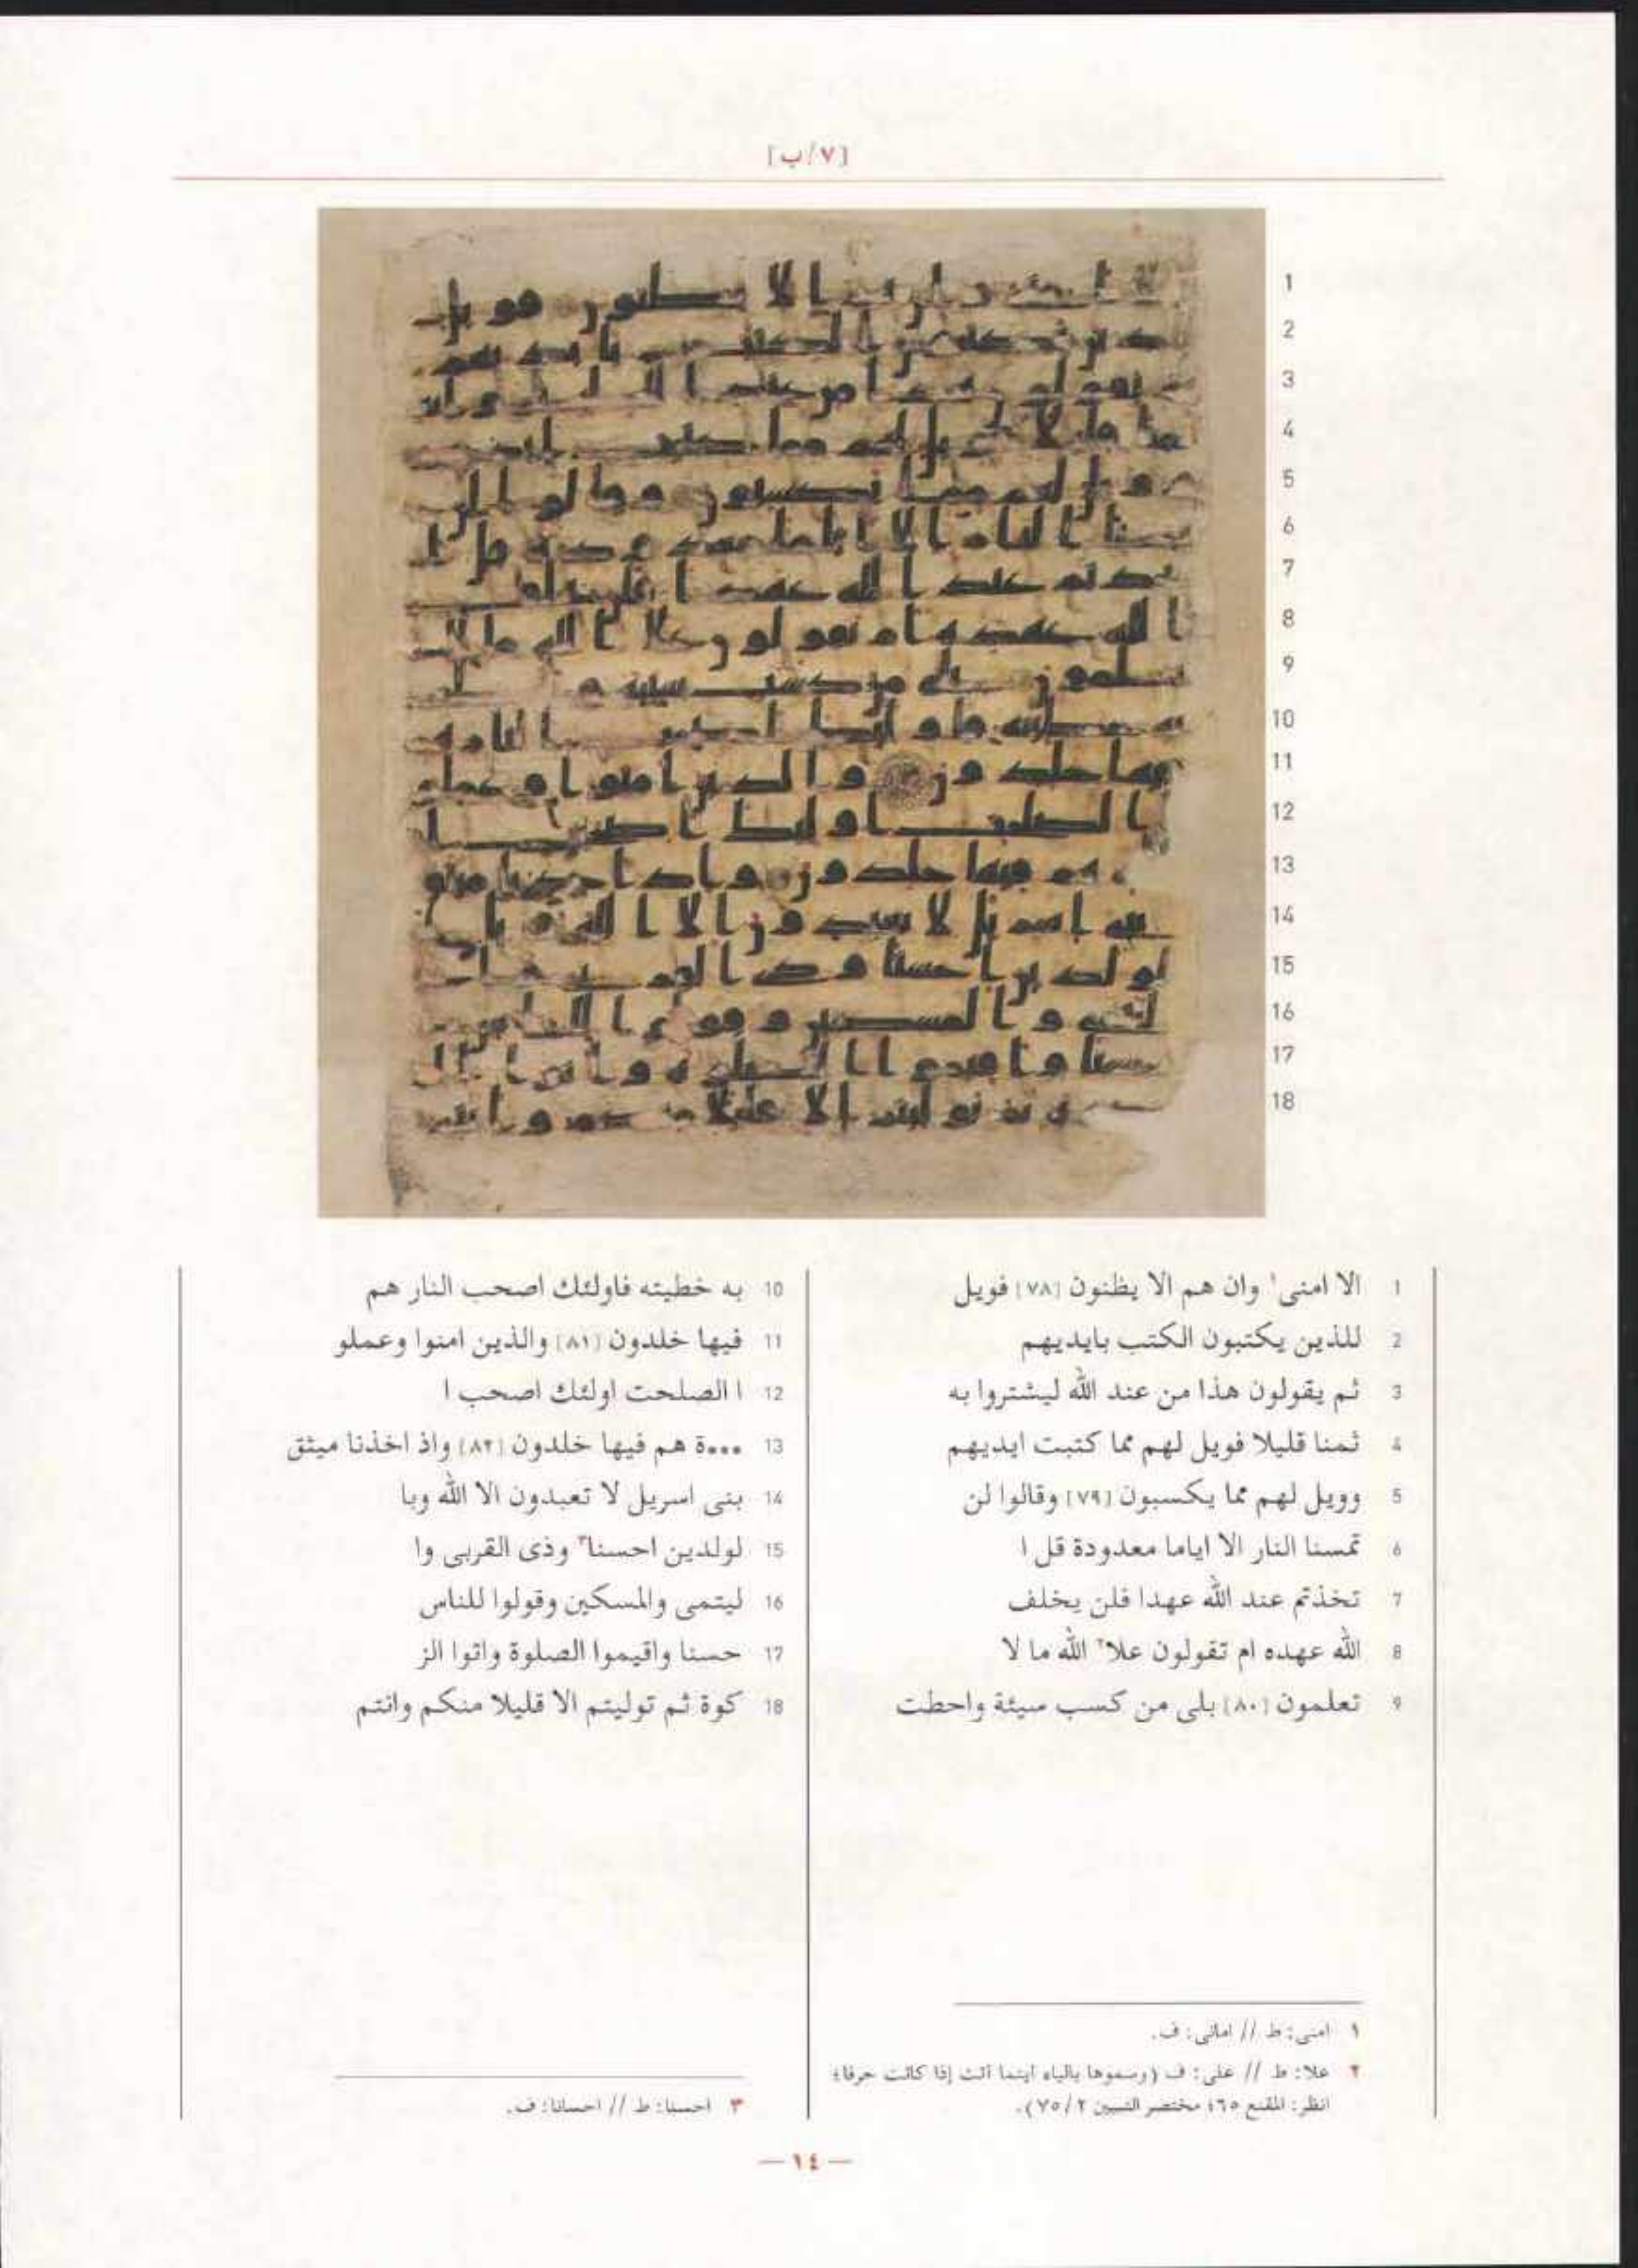 [٧/ب]
1
2
3
4
5
6
7
8
9
10
11
12
13
14
15
16
17
18
1 الا امنى١ وان هم الا يظنون [٧٨] فويل
2 للذين يكتبون الكتب بايديهم
3 ثم يقولون هذا من عند الله ليشتروا به
4 ثمنا قليلا فويل لهم مما كتبت ايديهم
5 وويل لهم مما يكسبون [٧٩] وقالوا لن
6 تمسنا النار الا اياما معدودة قل ا
7 تخذتم عند الله عهدا فلن يخلف
8 الله عهده ام تقولون علا٢ الله ما لا
9 تعلمون [٨٠] بلى من كسب سيئة واحطت
10 به خطيته فاولئك اصحب النار هم
11 فيها خلدون [٨١] والذين امنوا وعملو
12 ا الصلحت اولئك اصحب ا
13 •••ة هم فيها خلدون [٨٢] واذ اخذنا ميثق
14 بنى اسريل لا تعبدون الا الله وبا
15 لولدين احسنا٣ وذى القربى وا
16 ليتمى والمسكين وقولوا للناس
17 حسنا واقيموا الصلوة واتوا الز
18 كوة ثم توليتم الا قليلا منكم وانتم
١ امنى: ط // امانى: ف.
٢ علا: ط // على: ف (رسموها بالياء اينما أتت إذا كانت حرفا؛
انظر: المقنع ٦٥؛ مختصر التبيين ٧٥/٢).
٣ احسنا: ط // احسانا: ف.
— ١٤ —